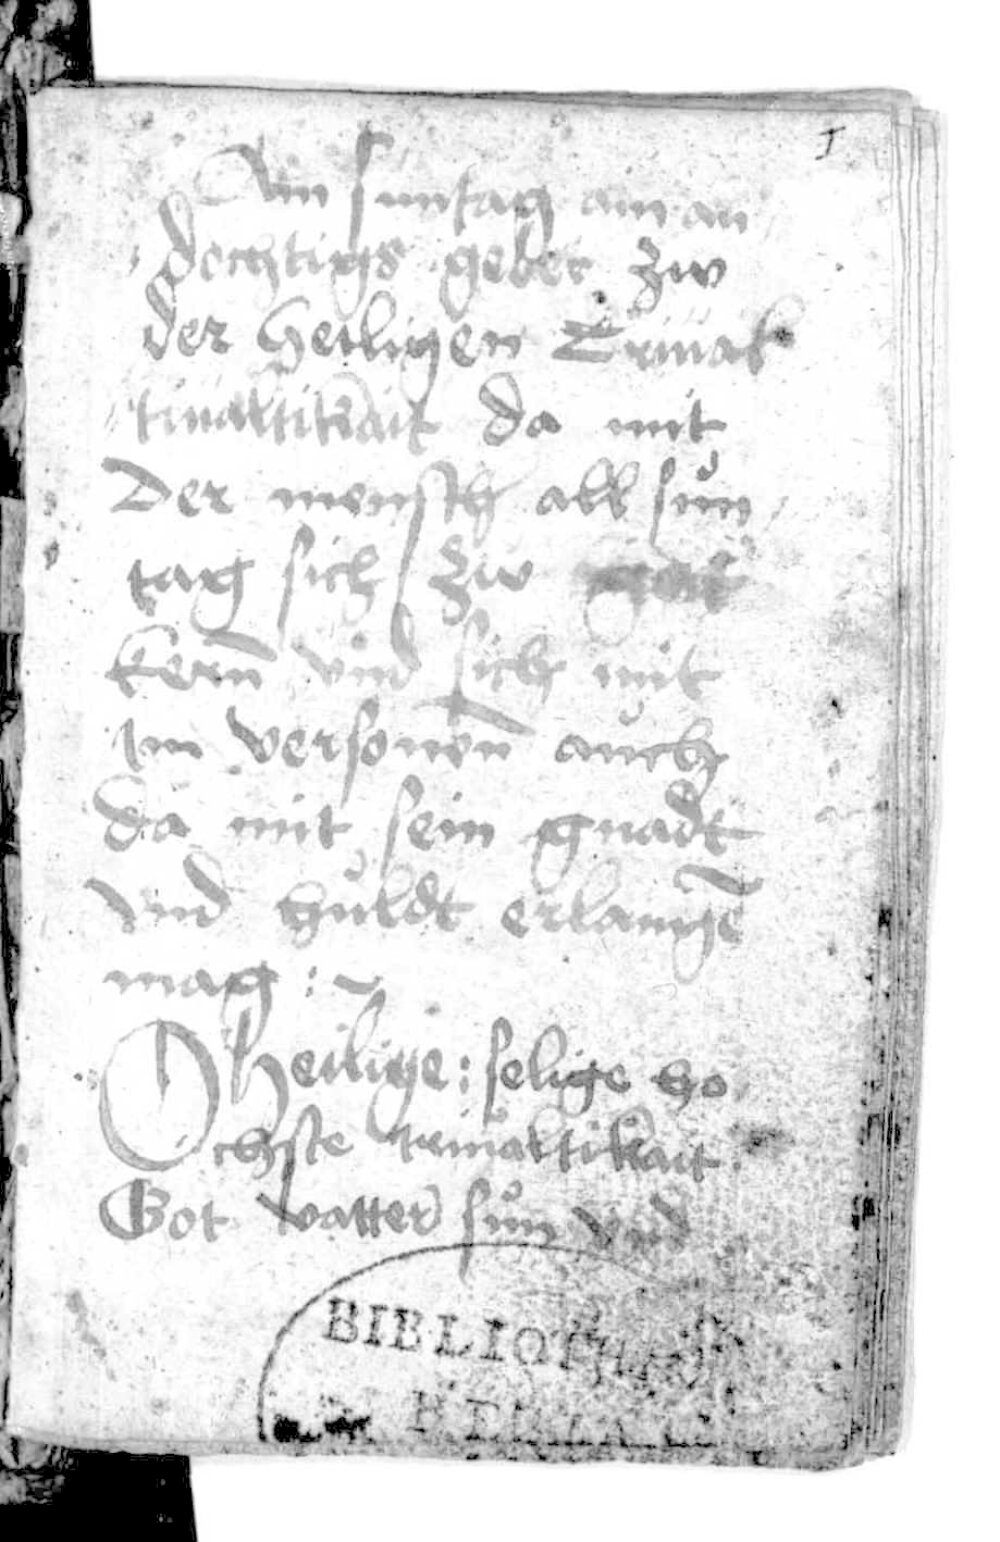 I
Am suntag ain an
dechtigs gebet zw
der heiligen Driual
tiualtikait da mit
Der mensch all sun
tag sich zw got
kern vnd sich mit
im versonen auch
da mit sein gnadt
vnd huldt erlange
mag :~
O heilige : selige ho
chste triualtikait
Got vatter sun vnd
BIBLIOTHECA